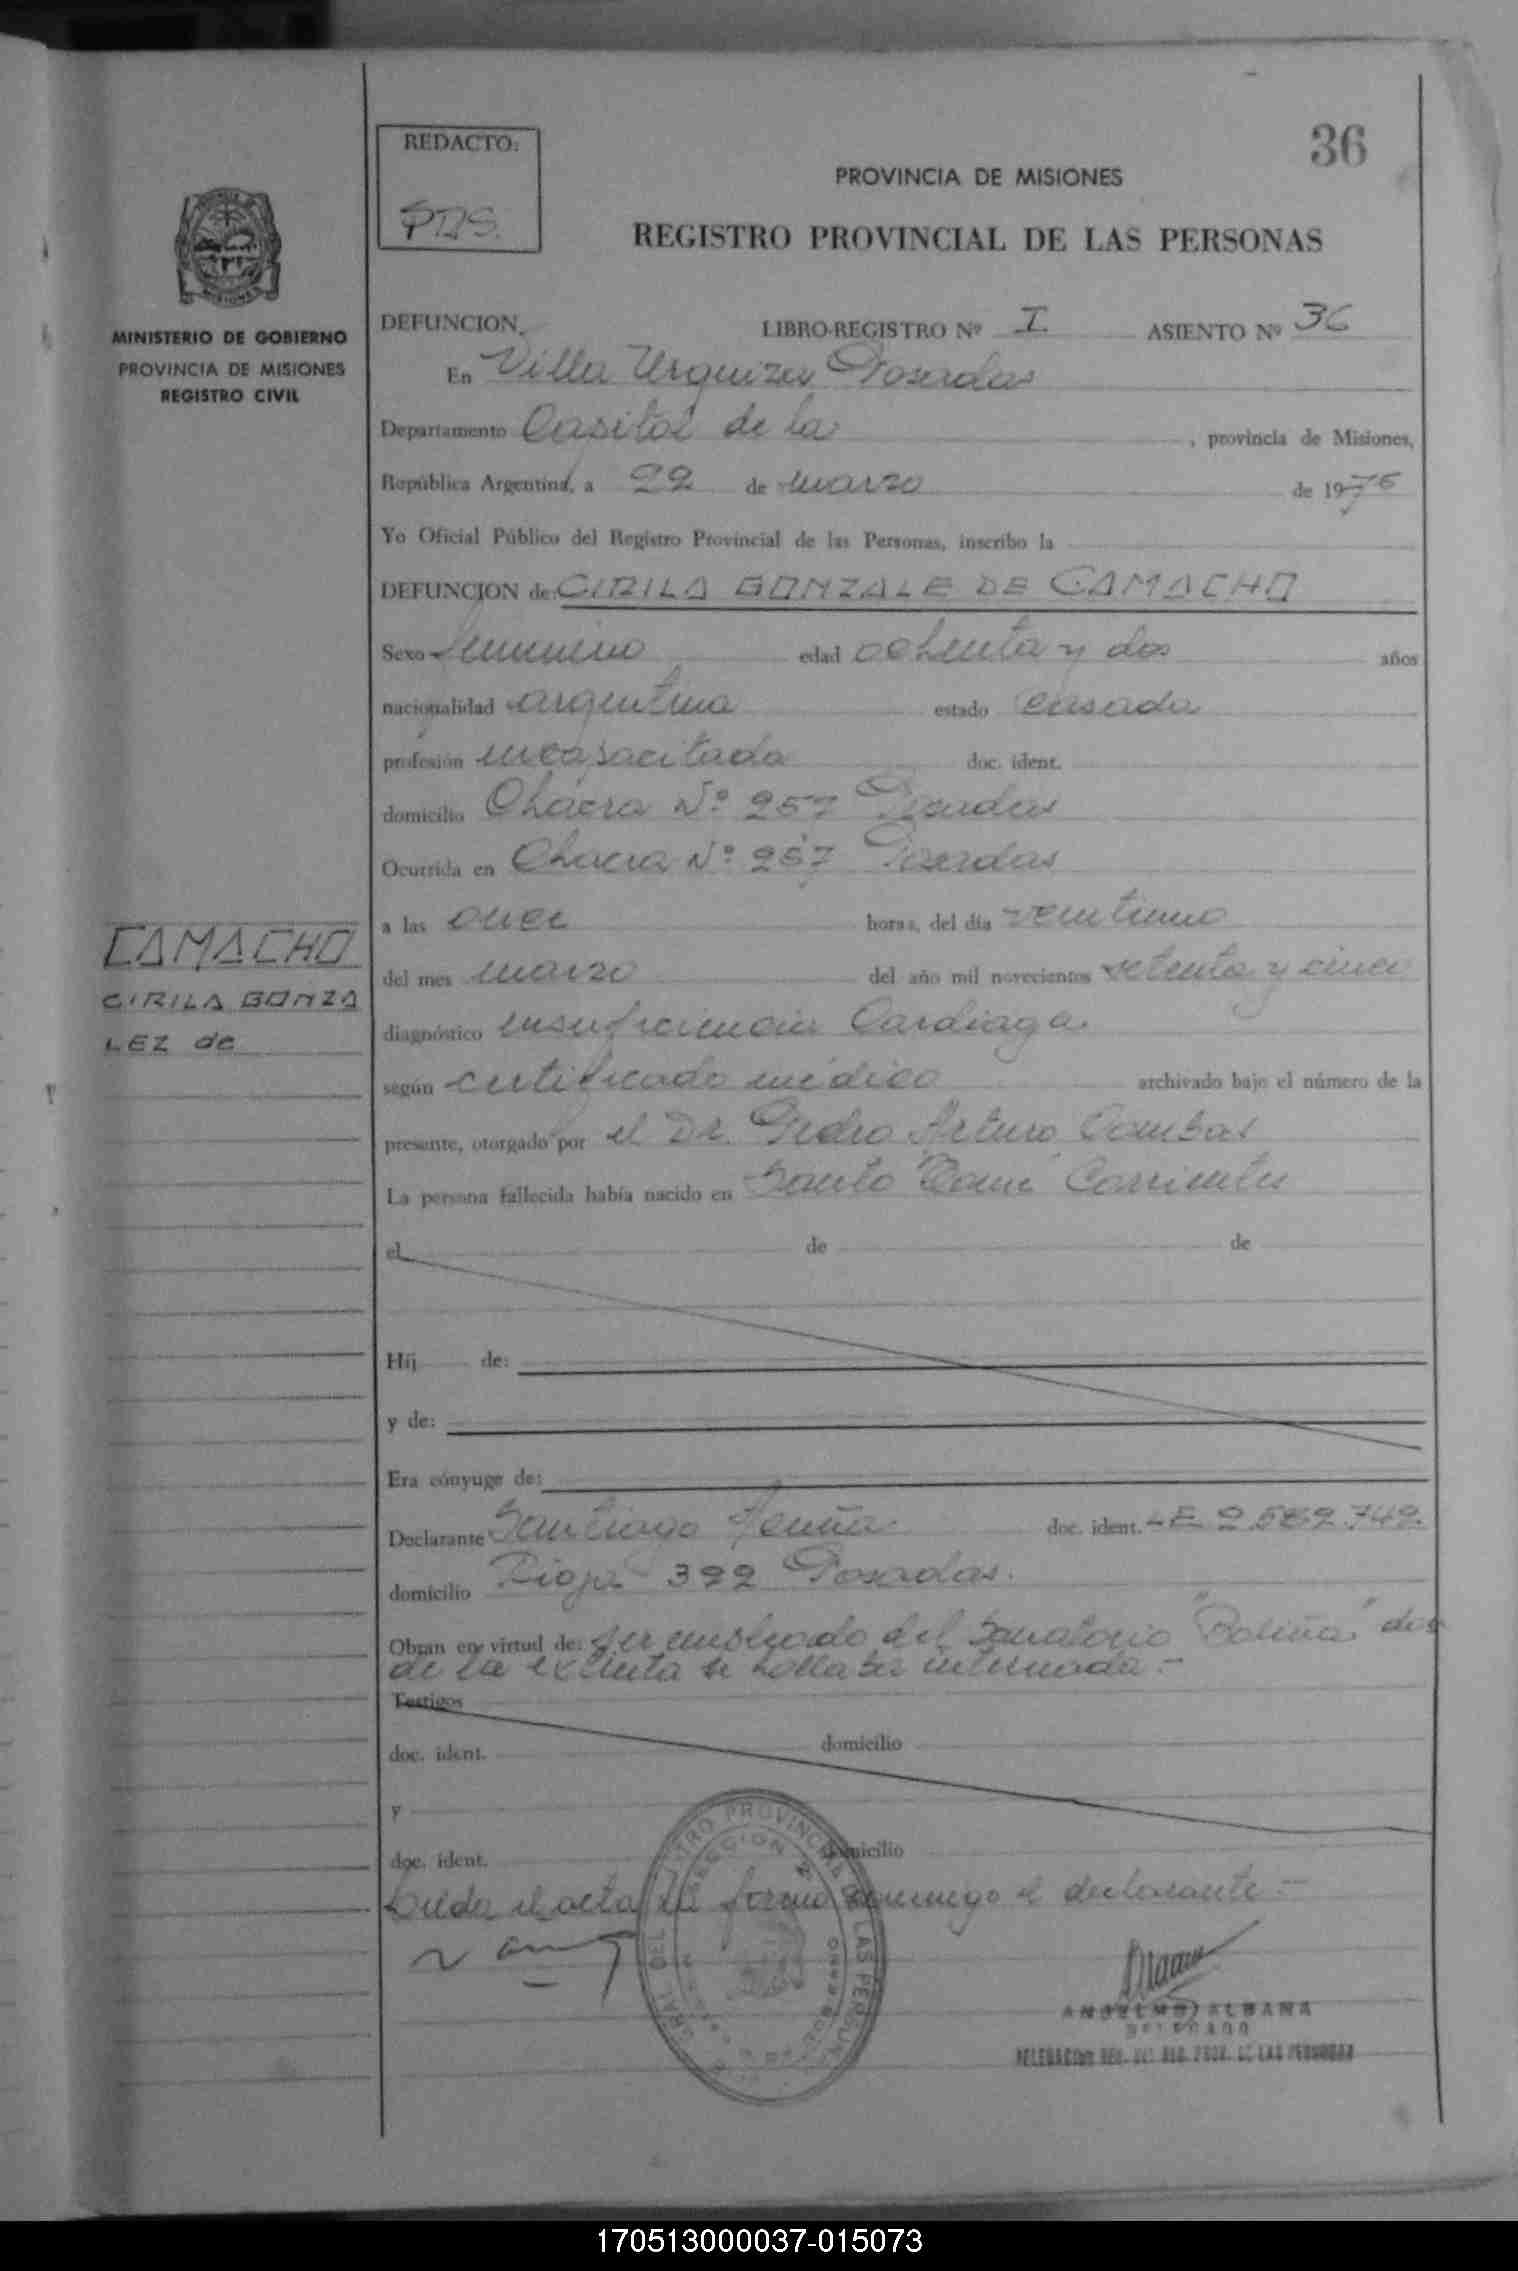 36
REDACTO:
PROVINCIA DE MISIONES
REGISTRO PROVINCIAL DE LAS PERSONAS
MISIONES
MINISTERIO DE GOBIERNO
PROVINCIA DE MISIONES
REGISTRO CIVIL
DEFUNCION. LIBRO-REGISTRO Nº I ASIENTO Nº 36
En Villa Urquiza Posadas
Departamento Capital de la , provincia de Misiones,
República Argentina, a 22 de marzo de 1975
Yo Oficial Público del Registro Provincial de las Personas, inscribo la
DEFUNCION de: CIRILA GONZALE DE CAMACHO
Sexo femenino edad ochenta y dos años
nacionalidad argentina estado casada
profesión incapacitada doc. ident.
domicilio Chacra Nº 257 Posadas
Ocurrida en Chacra Nº 257 Posadas
a las once horas, del día veintiuno
del mes marzo del año mil novecientos setenta y cinco
CAMACHO
CIRILA GONZA
LEZ de
diagnóstico insuficiencia Cardiaga.
según certificado médico archivado bajo el número de la
presente, otorgado por el Dr. Pedro Arturo
La persona fallecida había nacido en Santo Tomé Corrientes
el de de
Hij de:
y de:
Era cónyuge de:
Declarante Santiago Acuña doc. ident. LE 2.582.749.
domicilio Rioja 392 Posadas.
Obran en virtud de: ser empleado del Sanatorio
de la extinta se hallaba internada.-
Testigos
doc. ident. domicilio
y
doc. ident. domicilio
Leída el acta la forma conmigo el declarante.-
SECCION 2ª
ANSELMO ALBANA
DELEGADO
DELEGACION REG. DEL REG. PROV. DE LAS PERSONAS
170513000037-015073